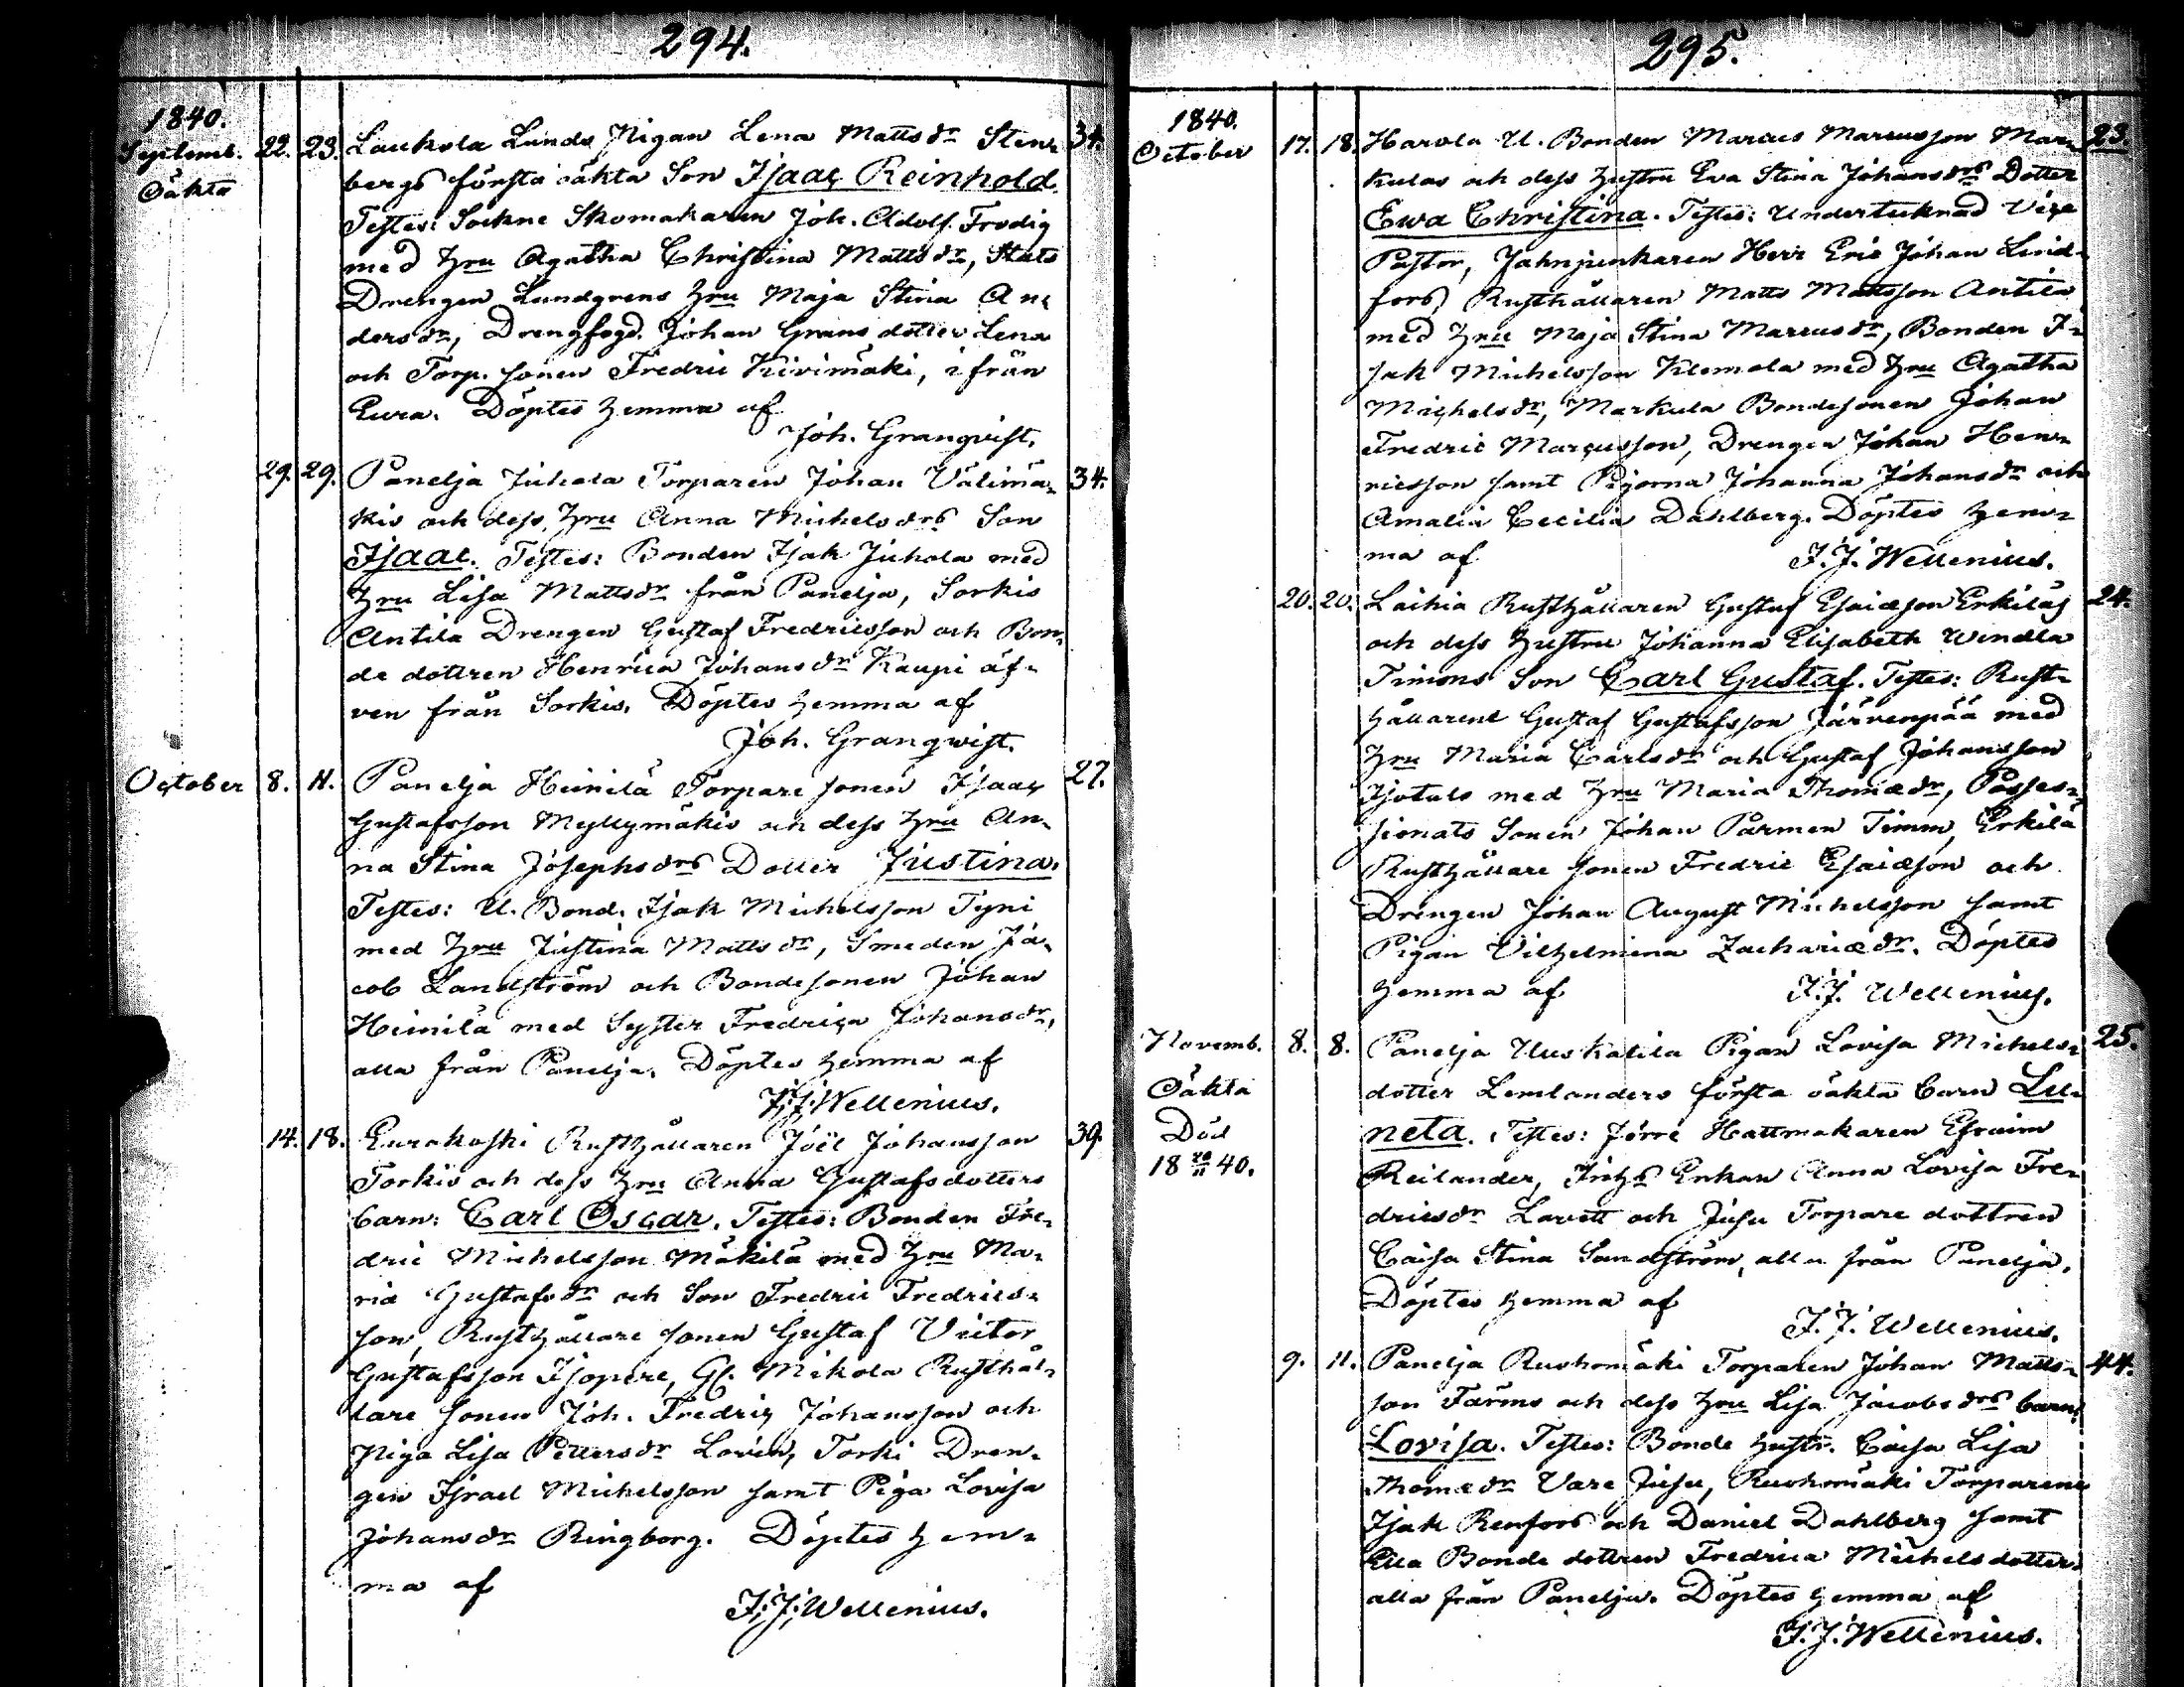 294.
1840.
Septemb. 22. 23. Laukola Lunds Pigan Lena Matts dr Sten- 34.
Oäkta bergs första oäkta Son Isaac Reinhold.
Testes: Sockne Skomakaren Joh. Adolf Frodig
med Hru Agatha Christina Matts dr, Stats
Drengen Lundgrens Hru Maja Stina An-
ders dr, Drengfogd. Johan Grans dotter Lena
och Torp. sonen Fredric Kivimäki, ifrån
Eura. Döptes hemma af
Joh. Granqvist.
29. 29. Panelja Juhola Torparen Johan Välimä- 34.
kis och dess Hru Anna Michels drs Son
Isaac. Testes: Bonden Isak Juhola med
Hru Lisa Matts dr från Panelja, Sorkis
Antila Drengen Gustaf Fredricsson och Bon-
de dottren Henrica Johans dr Kaupi äf-
ven från Sorkis. Döptes hemma af
Joh. Granqwist.
October 8. 11. Panelja Heinilä Torpare sonen Isaac 27.
Gustafsson Myllymäkis och dess Hru An-
na Stina Josephs drs Dotter Justina.
Testes: U. Bond. Isak Michelsson Tyni
med Hru Justina Matts dr, Smeden Ja-
cob Landström och Bondesonen Johan
Heinilä med Syster Fredrica Johans dr,
alla från Panelja. Döptes hemma af
F. J. Wellenius.
14. 18. Eurakoski Rusthållaren Joël Johansson 39.
Torkis och dess Hru Anna Gustafs dotters
barn: Carl Oscar. Testes: Bonden Fre-
dric Michelsson Mäkilä med Hru Ma-
ria Gustafs dr och Son Fredric Fredrics-
son, Rusthållare sonen Gustaf Victor
Gustafsson Isopere, Gl. Mikola Rusthål-
lare sonen Joh. Fredric Johansson och
Piga Lisa Petters dr Lovén, Torki Dren-
gen Israel Michelsson samt Piga Lovisa
Johans dr Ringborg. Döptes hem-
ma af
F. J. Wellenius.
295.
1840.
October 17. 18. Harola U. Bonden Marcus Marcusson Mar- 23.
kulas och dess Hustru Eva Stina Johans drs Dotter
Ewa Christina. Testes: Undertecknad Vice
Pastor, Fahnjunkaren Herr Eric Johan Lind-
fors, Rusthållaren Matts Mattsson Antila
med Hru Maja Stina Marcus dr, Bonden I-
sak Michelsson Klemola med Hru Agatha
Michels dr, Markula Bondesonen Johan
Fredric Marcusson, Drengen Johan Hen-
ricsson samt Pigorna Johanna Johans dr och
Amalia Cecilia Dahlberg. Döptes hem-
ma af F. J. Wellenius.
20. 20. Laihia Rusthållaren Gustaf Esaiæson Erkiläs 24.
och dess Hustru Johanna Elisabeth Wendla
Timms Son Carl Gustaf. Testes: Rust-
hållarene Gustaf Gustafsson Järvenpää med
Hru Maria Carls dr och Gustaf Johansson
Isotalo med Hru Maria Thomæ dr, Posses-
sionats Sonen Johan Parmen Timm, Erkilä
Rusthållare sonen Fredric Esaiæson och
Drengen Johan August Michelsson samt
Pigan Vilhelmina Zachariæ dr. Döptes
hemma af F. J. Wellenius.
Novemb. 8. 8. Panelja Uuskalila Pigan Lovisa Michels- 25.
Oäkta dotter Lemlanders första oäkta barn Lu-
Död neta. Testes: Förre Hattmakaren Efraim
18 40. Reilander, Enkan Anna Lovisa Fre-
drics dr Lavett och Jusu Torpare dottren
Caisa Stina Sandström, alla från Panelja.
Döptes hemma af
F. J. Wellenius.
9. 11. Panelja Ruohomäki Torparen Johan Matts- 44.
son Farms och dess Hru Lisa Jacobs drs barn:
Lovisa. Testes: Bonde hustr. Caisa Lisa
Thomæ dr Vare Jusu, Ruohomäki Torparene
Isak Renfors och Daniel Dahlberg samt
Bonde dottren Fredrica Michels dotter
alla från Panelja. Döptes hemma af
F. J. Wellenius.